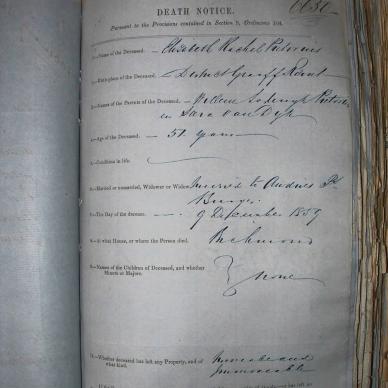 DEATH NOTICE.
Pursuant to the Provisions contained in Section 9, Ordinance 104.
1.—Name of the Deceased, — Elizabeth Rachel Pretorius
2.—Birth-place of the Deceased, — District Graaff Reinet
3.—Names of the Parents of the Deceased, — Willem Pretorius
en Sara Van Dyk
4.—Age of the Deceased, — 51 years
5.—Condition in life,
6.—Married or unmarried, Widower or Widow, Married to Andries
Burger
7.—The Day of the decease, — 9 December 1859
8.—At what House, or where the Person died, Richmond
9.—Names of the Children of Deceased, and whether
Minors or Majors. } none
10.—Whether deceased has left any Property, and of
what kind, moveable and
immoveable